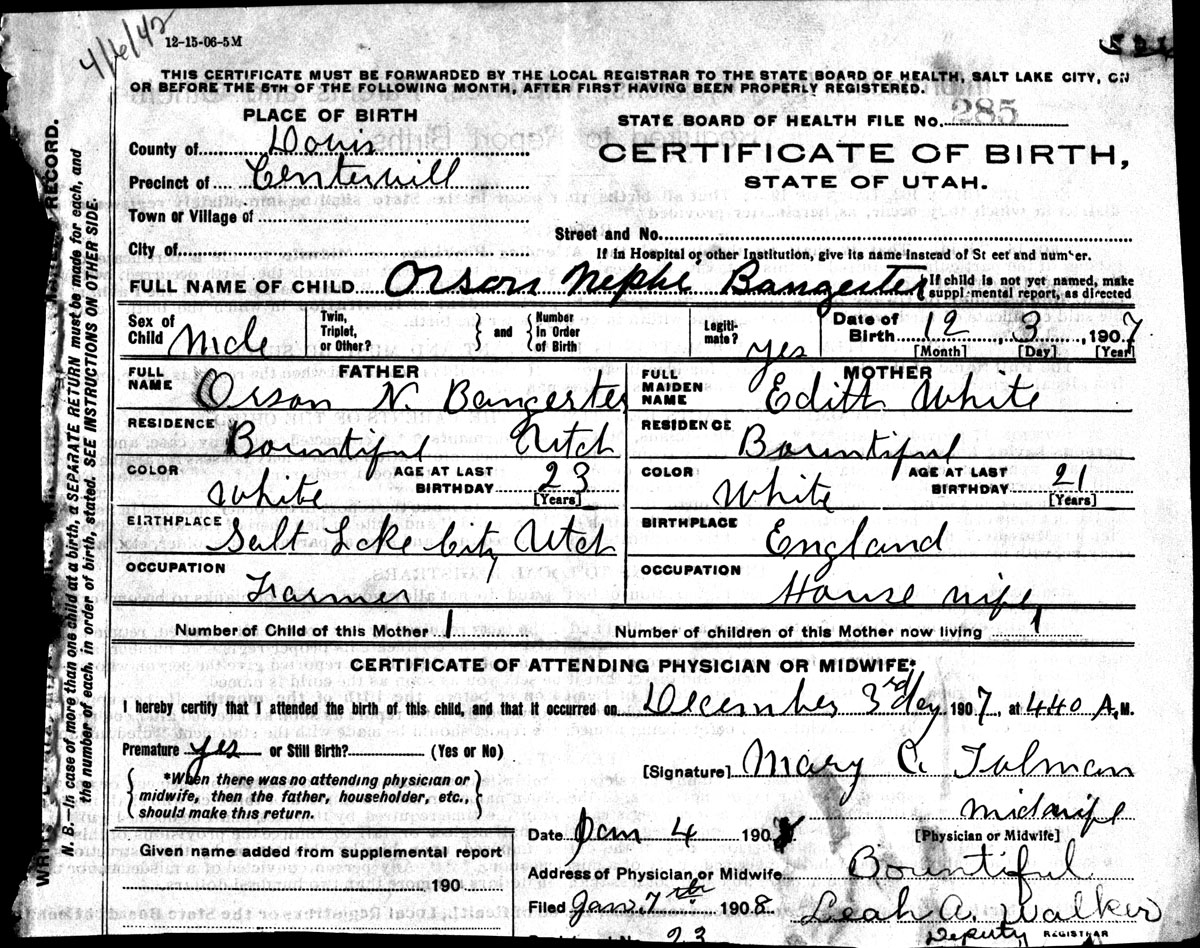 4/6/42
12-15-06-5M
THIS CERTIFICATE MUST BE FORWARDED BY THE LOCAL REGISTRAR TO THE STATE BOARD OF HEALTH, SALT LAKE CITY, ON
OR BEFORE THE 5TH OF THE FOLLOWING MONTH, AFTER FIRST HAVING BEEN PROPERLY REGISTERED.
PLACE OF BIRTH
STATE BOARD OF HEALTH FILE NO. 285
County of Davis
CERTIFICATE OF BIRTH,
Precinct of Centervill
STATE OF UTAH.
Town or Village of
Street and No.
City of
If in Hospital or other Institution, give its name instead of St eet and number.
FULL NAME OF CHILD Orson Nephi Bangerter
If child is not yet named, make
suppl mental report, as directed
Sex of Child Male Twin, Triplet, or Other? and Number in Order of Birth Legiti-mate? yes Date of Birth 12 3, 1907
[Month] [Day] [Year]
FATHER MOTHER
FULL NAME Orson N. Bangerter FULL MAIDEN NAME Edith White
RESIDENCE Bountiful Utah RESIDENCE Bountiful
COLOR White AGE AT LAST BIRTHDAY 23 [Years] COLOR White AGE AT LAST BIRTHDAY 21 [Years]
BIRTHPLACE Salt Lake City Utah BIRTHPLACE England
OCCUPATION Farmer OCCUPATION House wife
Number of Child of this Mother 1 Number of children of this Mother now living 1
CERTIFICATE OF ATTENDING PHYSICIAN OR MIDWIFE:
I hereby certify that I attended the birth of this child, and that it occurred on December 3rd day 1907, at 440 A.M.
Premature yes or Still Birth? (Yes or No)
[Signature] Mary C. Tolman
*When there was no attending physician or
midwife, then the father, householder, etc.,
should make this return.
midwife
[Physician or Midwife]
Date Jan 4 190
Given name added from supplemental report
190
Address of Physician or Midwife Bountiful
Filed Jan. 7th 1908 Leah A. Walker
Deputy REGISTRAR
23
N. B.—In case of more than one child at a birth, a SEPARATE RETURN must be made for each, and
the number of each, in order of birth, stated. SEE INSTRUCTIONS ON OTHER SIDE.
RECORD.